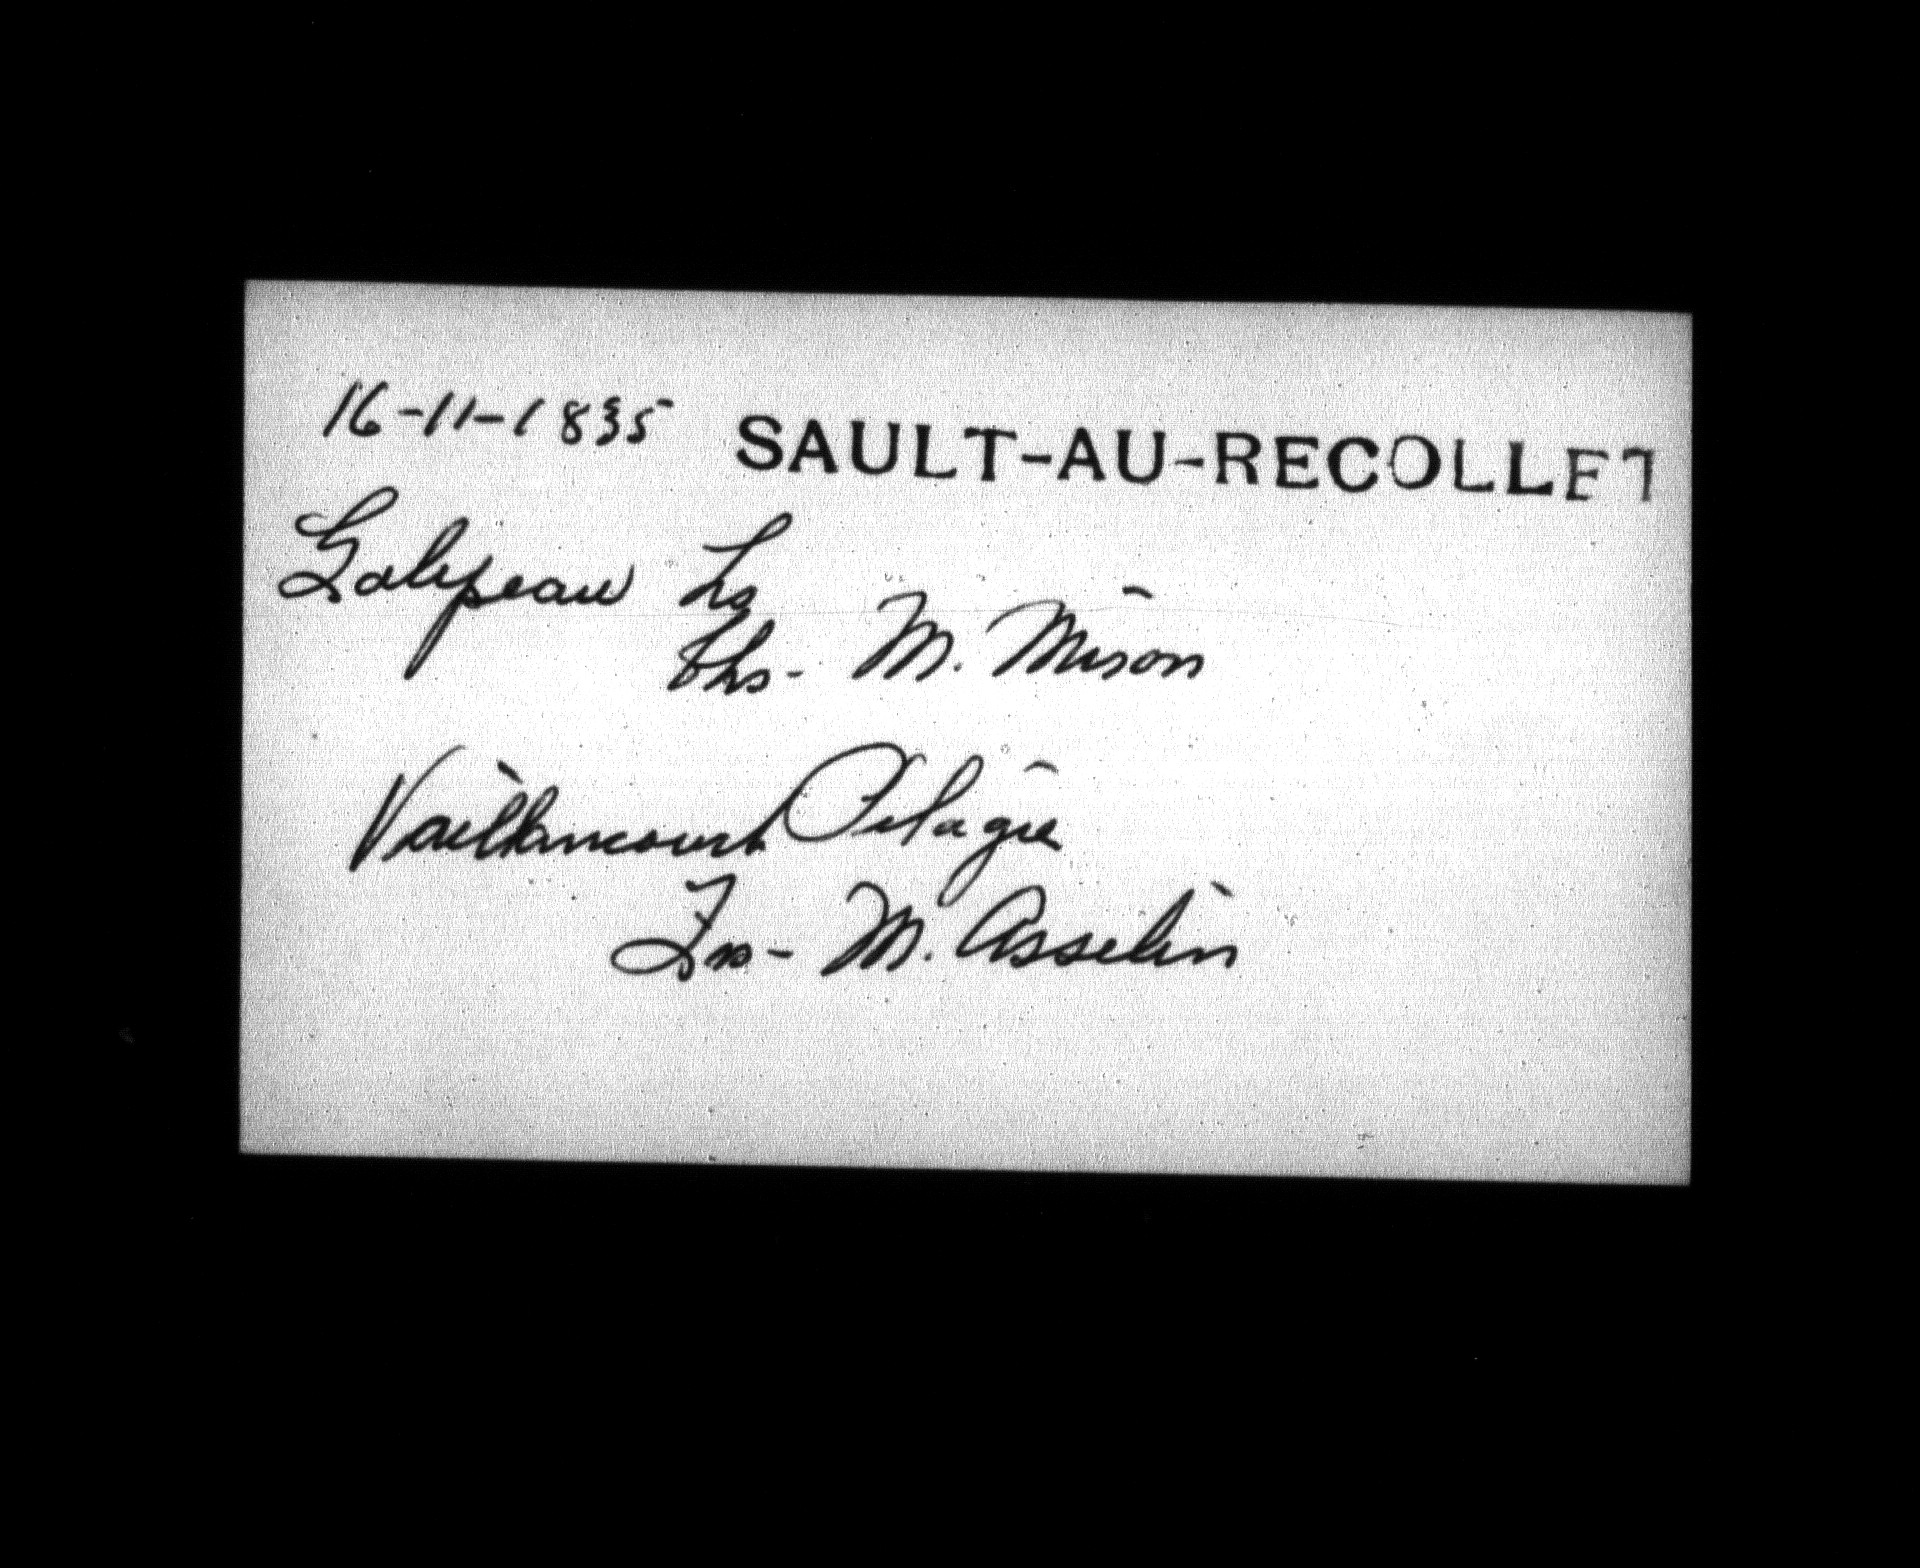 16-11-1835 SAULT-AU-RECOLLET
Galipeau Ls
Chs - M. Mison
Vaillancourt Pelagie
Frs - M. Asselin